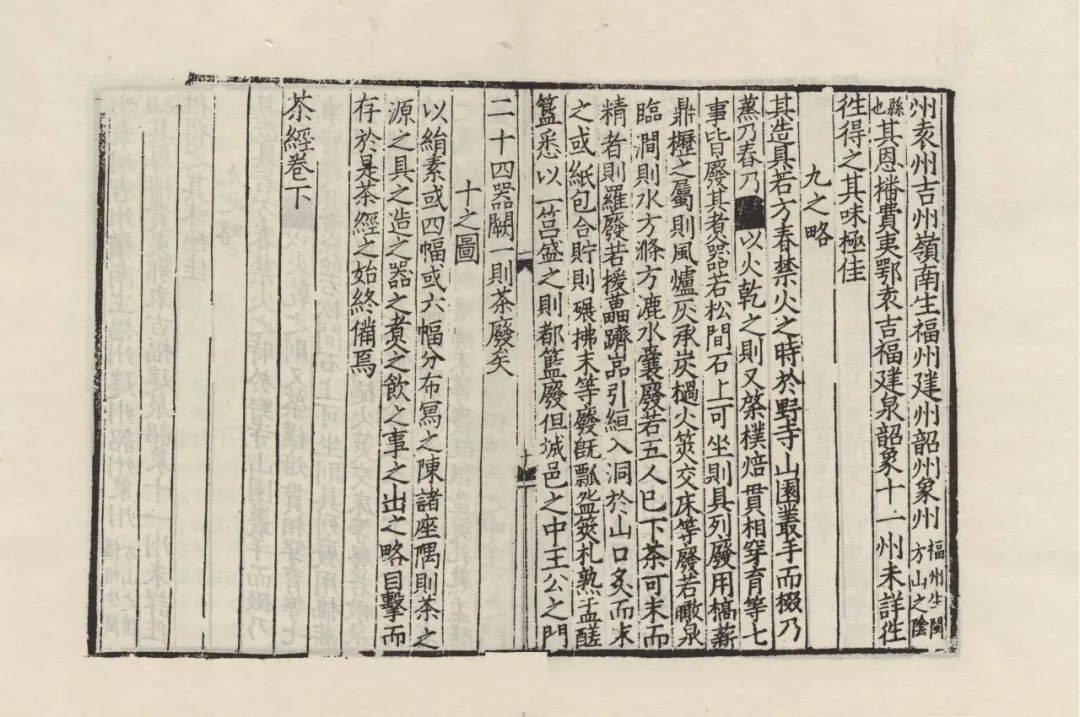 州袁州吉州嶺南生福州建州韶州象州福州生閩方山之陰
縣也其恩播費夷鄂袁吉福建泉韶象十一州未詳徃
徃得之其味極佳
九之略
其造具若方春禁火之時於野寺山園叢手而掇乃
蒸乃舂乃以火乾之則又棨樸焙貫相穿育等七
事皆廢其煮器若松間石上可坐則具列廢用槁薪
鼎櫪之屬則風爐灰承炭檛火筴交床等廢若瞰泉
臨澗則水方滌方漉水囊廢若五人已下茶可末而
精者則羅廢若援藟躋嵒引絙入洞於山口炙而末
之或紙包合貯則碾拂末等廢旣瓢盌筴札熟盂醝
簋悉以一筥盛之則都籃廢但城邑之中王公之門
二十四器闕一則茶廢矣
十之圖
以絹素或四幅或六幅分布寫之陳諸座隅則茶之
源之具之造之器之煮之飲之事之出之略目擊而
存於是茶經之始終備焉
茶經卷下